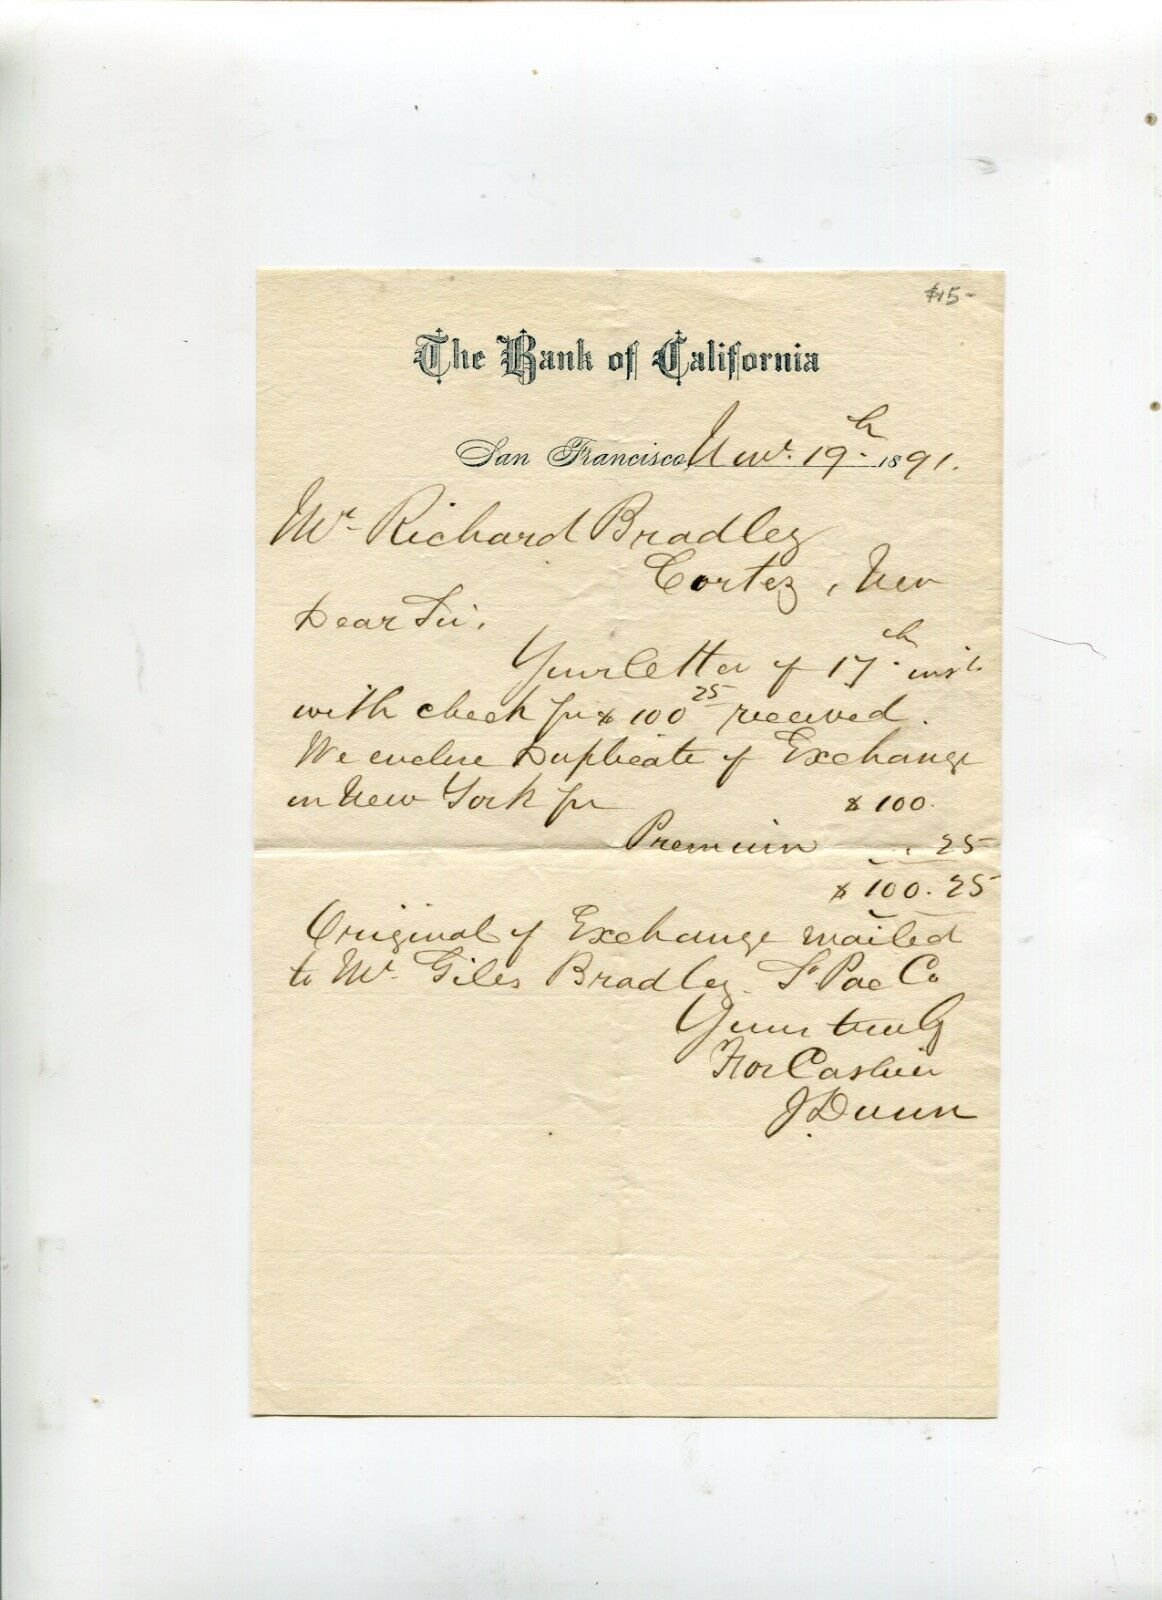 $15-
The Bank of California
San Francisco, Nov. 19th 1891.
Mr Richard Bradley
Cortez, Nev
Dear Sir,
Your letter of 17th inst.
with check for $100 25 received.
We enclose Duplicate of Exchange
in New York for $100.
Premium .25
$100.25
Original of Exchange mailed
to Mr Giles Bradley Pac Co
Yours truly
For Cashier
J. Dunn